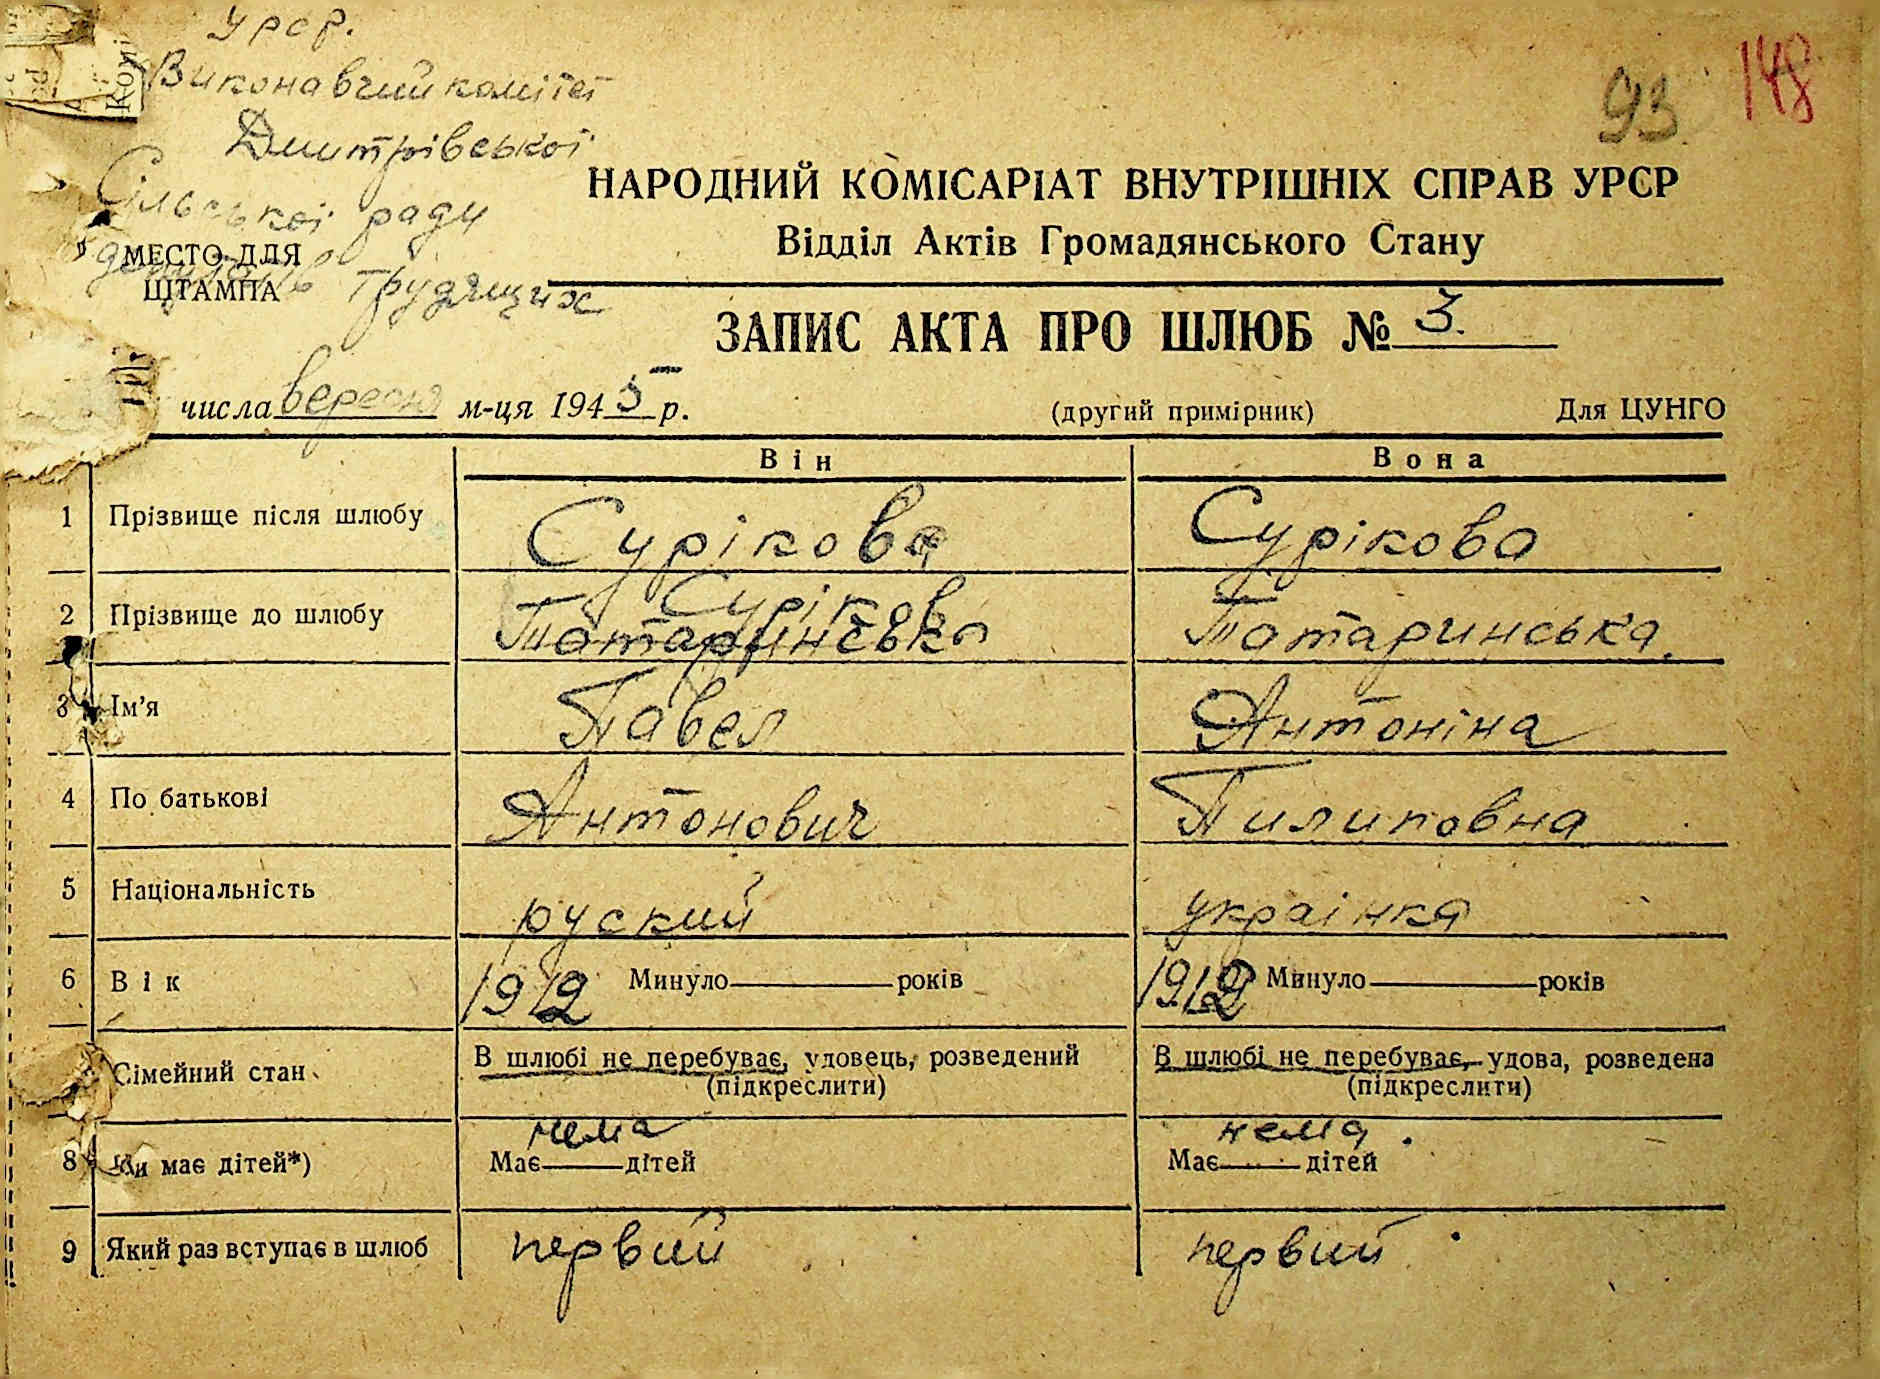 УРСР.
Виконавчий комітет
Дмитрівської
Сільської ради
депутатів Трудящих
МЕСТО ДЛЯ
ШТАМПА
93
148
НАРОДНИЙ КОМІСАРІАТ ВНУТРІШНІХ СПРАВ УРСР
Відділ Актів Громадянського Стану
ЗАПИС АКТА ПРО ШЛЮБ № 3.
числа вересня м-ця 1945 р. (другий примірник) Для ЦУНГО
Він Вона
1 Прізвище після шлюбу Сурікова Сурікова
2 Прізвище до шлюбу Потаринська Суріков Потаринська.
3 Ім'я Павел Антоніна
4 По батькові Антонович Пилиповна
5 Національність руский украінка
6 Вік 1912 Минуло років 1912 Минуло років
Сімейний стан В шлюбі не перебуває, удовець, розведений (підкреслити) В шлюбі не перебуває, удова, розведена (підкреслити)
8 Чи має дітей*) Має нема дітей Має нема дітей
9 Який раз вступає в шлюб первий первий